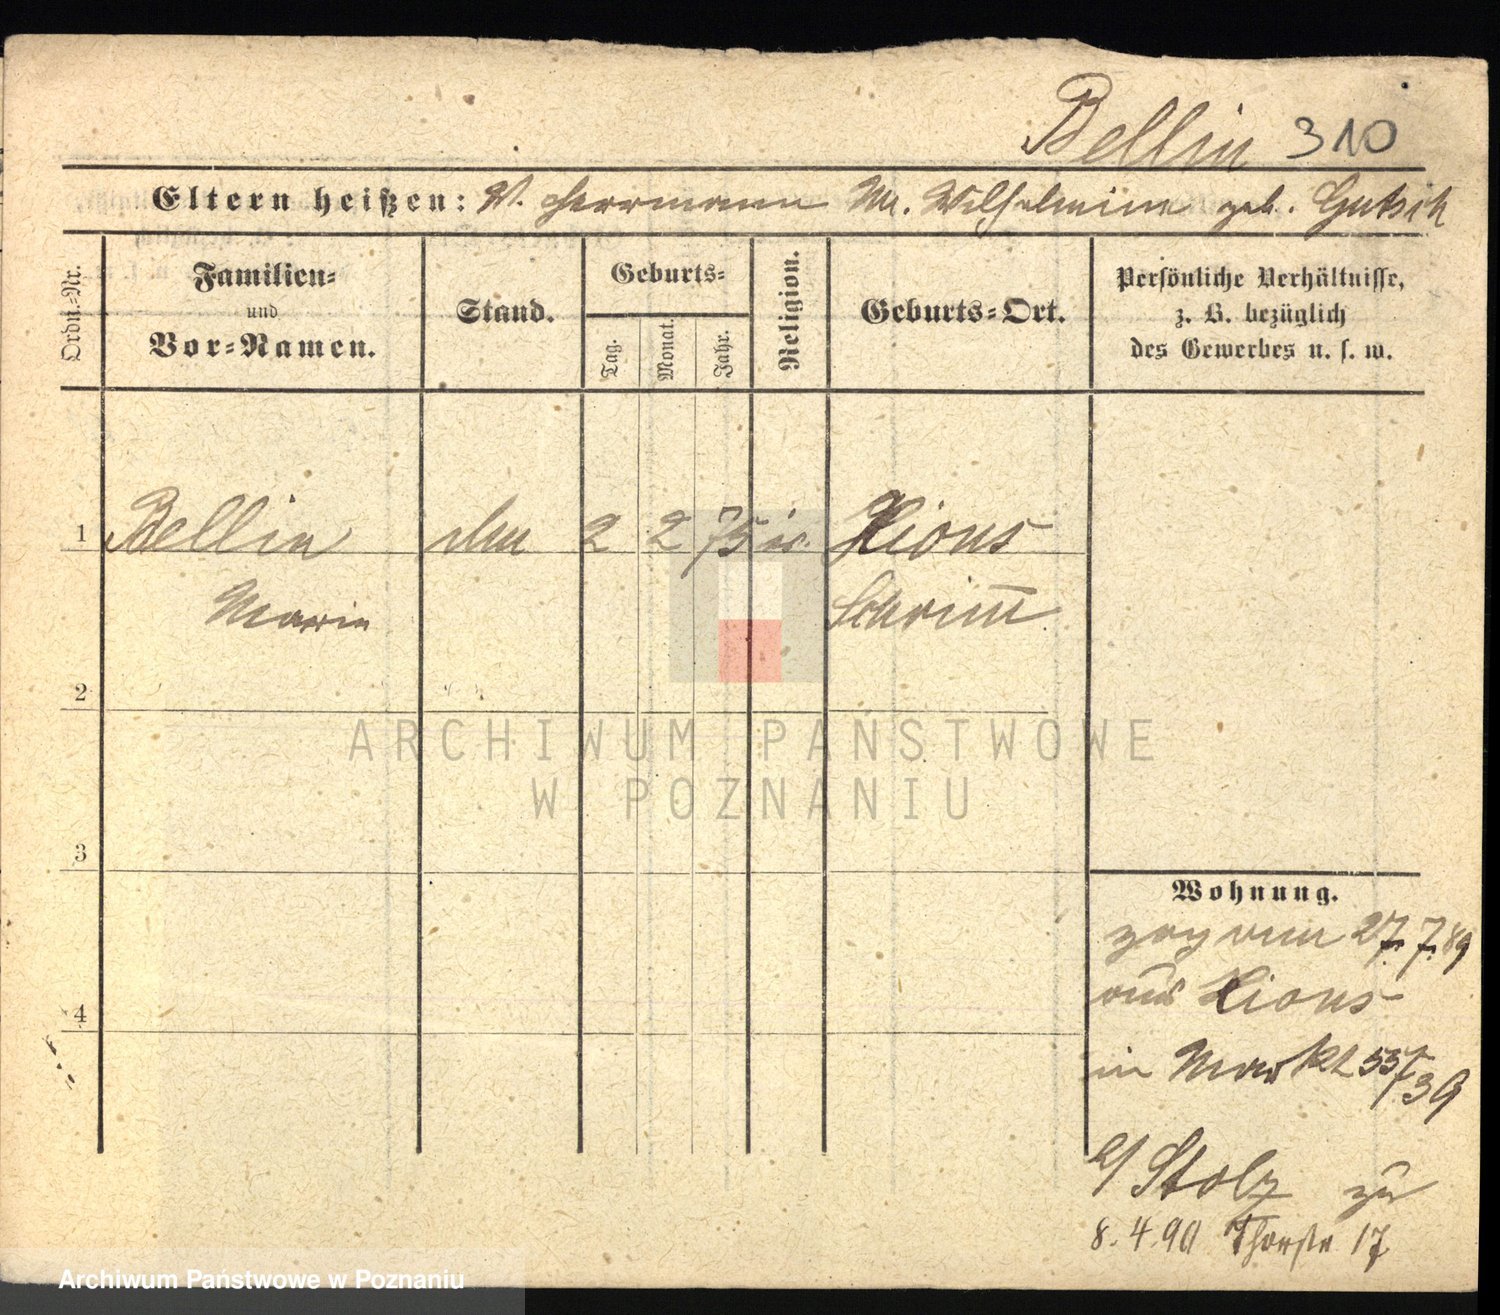 Bellin 310
Eltern heißen: V. Herrmann M. Wilhelmine geb. Gutsch
Ordn.-Nr.
Familien-
und
Vor-Namen.
Stand.
Geburts-
Tag.
Monat.
Jahr.
Religion.
Geburts-Ort.
Persönliche Verhältnisse,
z. B. bezüglich
des Gewerbes u. s. w.
1 Bellin 2 2 75 Xions
Marie Schrimm
2
3
4
Wohnung.
zog von 27. 7. 89
aus Xions
in Markt 39
b/ Stolz
8. 4. 90 17
ARCHIWUM PAŃSTWOWE
W POZNANIU
Archiwum Państwowe w Poznaniu